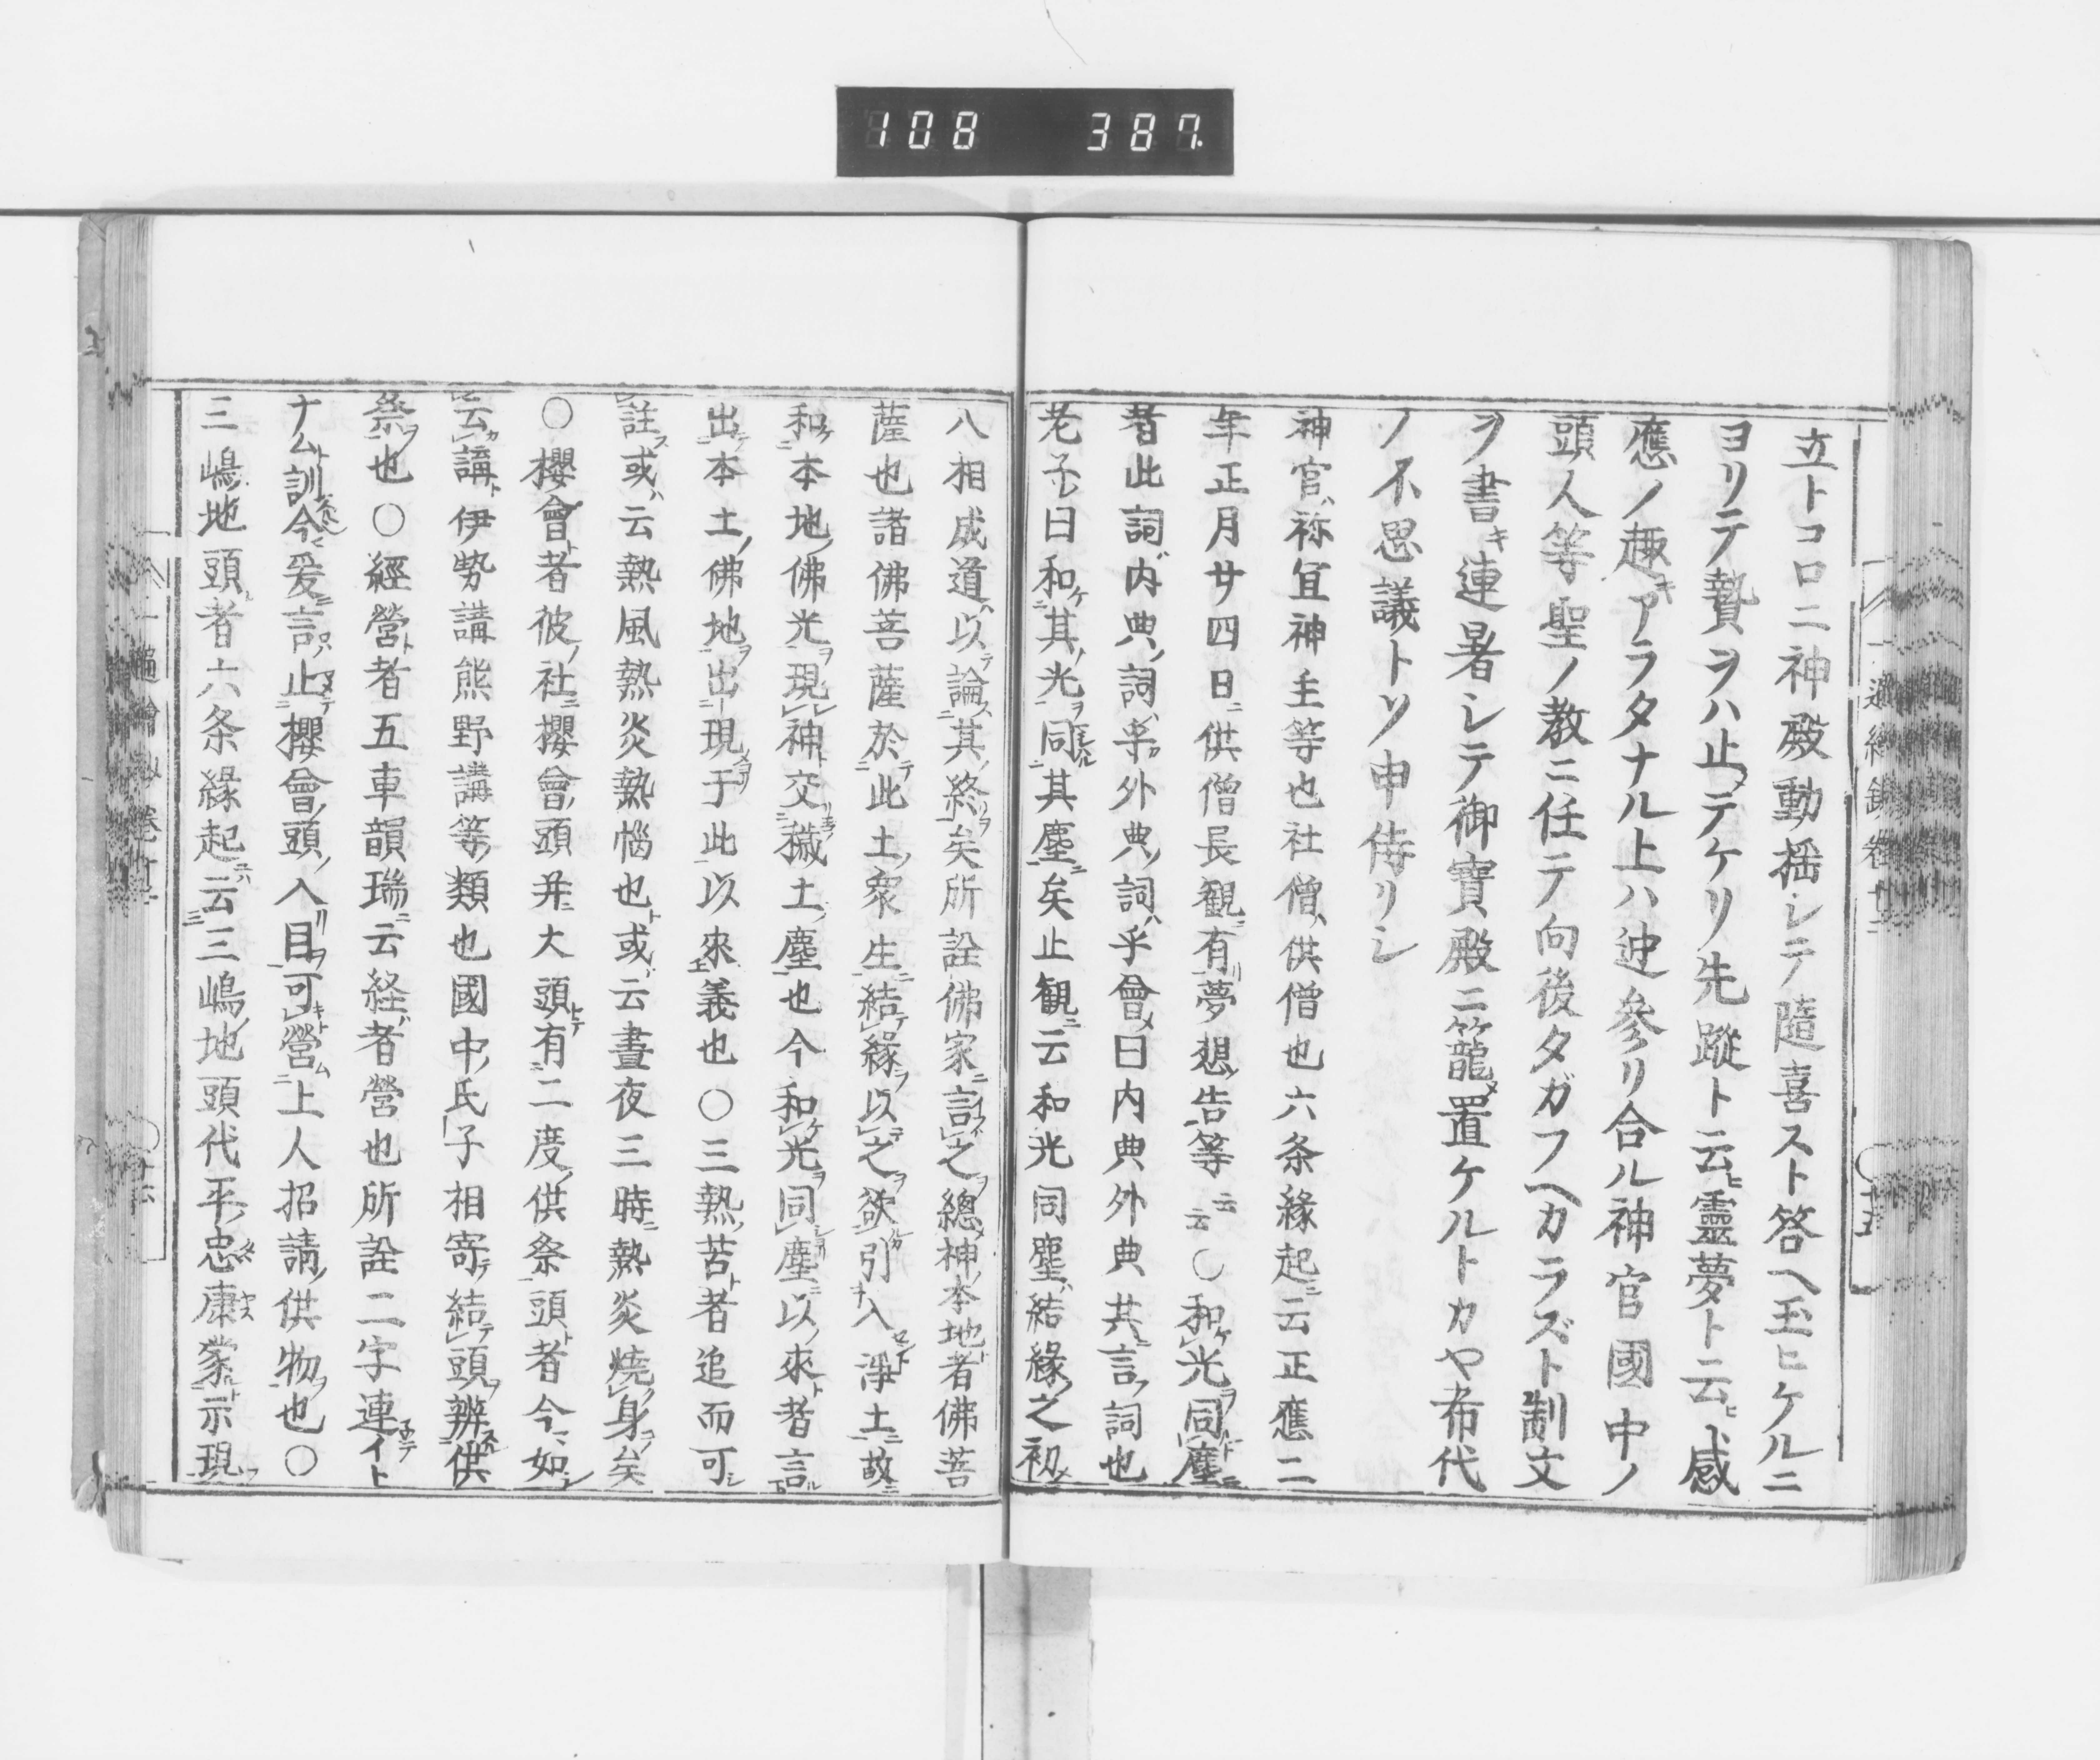 108 387.
立トコロニ神殿動揺シテ隨喜スト答ヘ玉ヒケルニ
ヨリテ贄ヲハ止メテケリ先蹤ト云ヒ靈夢ト云ヒ感
應ノ趣キアラタナル上ハ迚參リ合ル神官國中ノ
頭人等聖ノ教ニ任テ向後タガフヘカラズト制文
ヲ書キ連暑シテ御寶殿ニ籠メ置ケルトカヤ希代
ノ不思議トソ申侍リシ
神官ハ祢宜神主等也社僧ハ供僧也六条緣起ニ云正應二
年正月廿四日ニ供僧長観ニ有リ夢想ノ告等云云○和ケ光ヲ同トハ塵ニ
者此詞ハ内典ノ詞乎外典ノ詞乎會メ曰内典外典共ニ言フ詞也
老子曰和ケ其ノ光ヲ同ス其塵ニ矣止観ニ云和光同塵ハ結緣ノ之初メ
八相成道ハ以テ論ス其ノ終ヲ矣所詮佛家ニ言之ヲ總メ神ノ本地ト者佛菩
薩也諸佛菩薩於テ此土ノ衆生ニ結テ緣ヲ以テ之ヲ欲引入ント淨土ニ故ニ
和ケ本地ノ佛光ヲ現シ神ト交リ玉フ穢土ノ塵ニ也今和ケ光ヲ同塵ニ以來ト者言ル
出テ本土ノ佛地ヲ出現メ于此ニ以來義也○三熱ノ苦ト者追而可シ
註ス或ハ云熱風熱炎熱惱也ト或ハ云晝夜三時ニ熱炎燒ク身ヲ矣
○櫻會ト者彼ノ社ニ櫻會ノ頭并ニ大頭トテ有二度ノ供祭ノ頭ト者今ノ如シ
云カ講ト伊勢講熊野講等ノ類也國中ノ氏子相寄テ結テ頭ヲ辨ス供
祭ヲ也○經營ト者五車韻瑞ニ云経ハ者營也所詮二字連子テイト
ナムト訓ス今爰ニ言ハ止メテ櫻會ノ頭ノ入目ヲ可キト營ム上人招請ノ供物ヲ也○
三嶋ノ地頭ト者六条緣起ニ云三嶋ノ地頭代平ノ忠康蒙ト示現ヲ